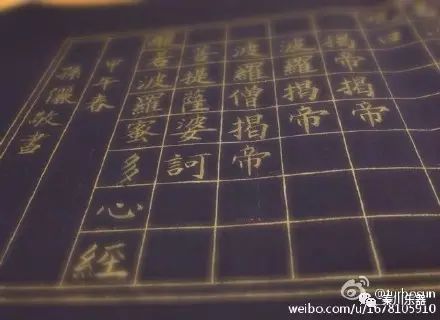 曰
揭帝揭帝
波羅揭帝
波羅僧揭帝
菩提薩婆訶
般若波羅蜜多心經
甲午春
孫儷敬書
@turbosun
秦川乐器
weibo.com/u/1678105910